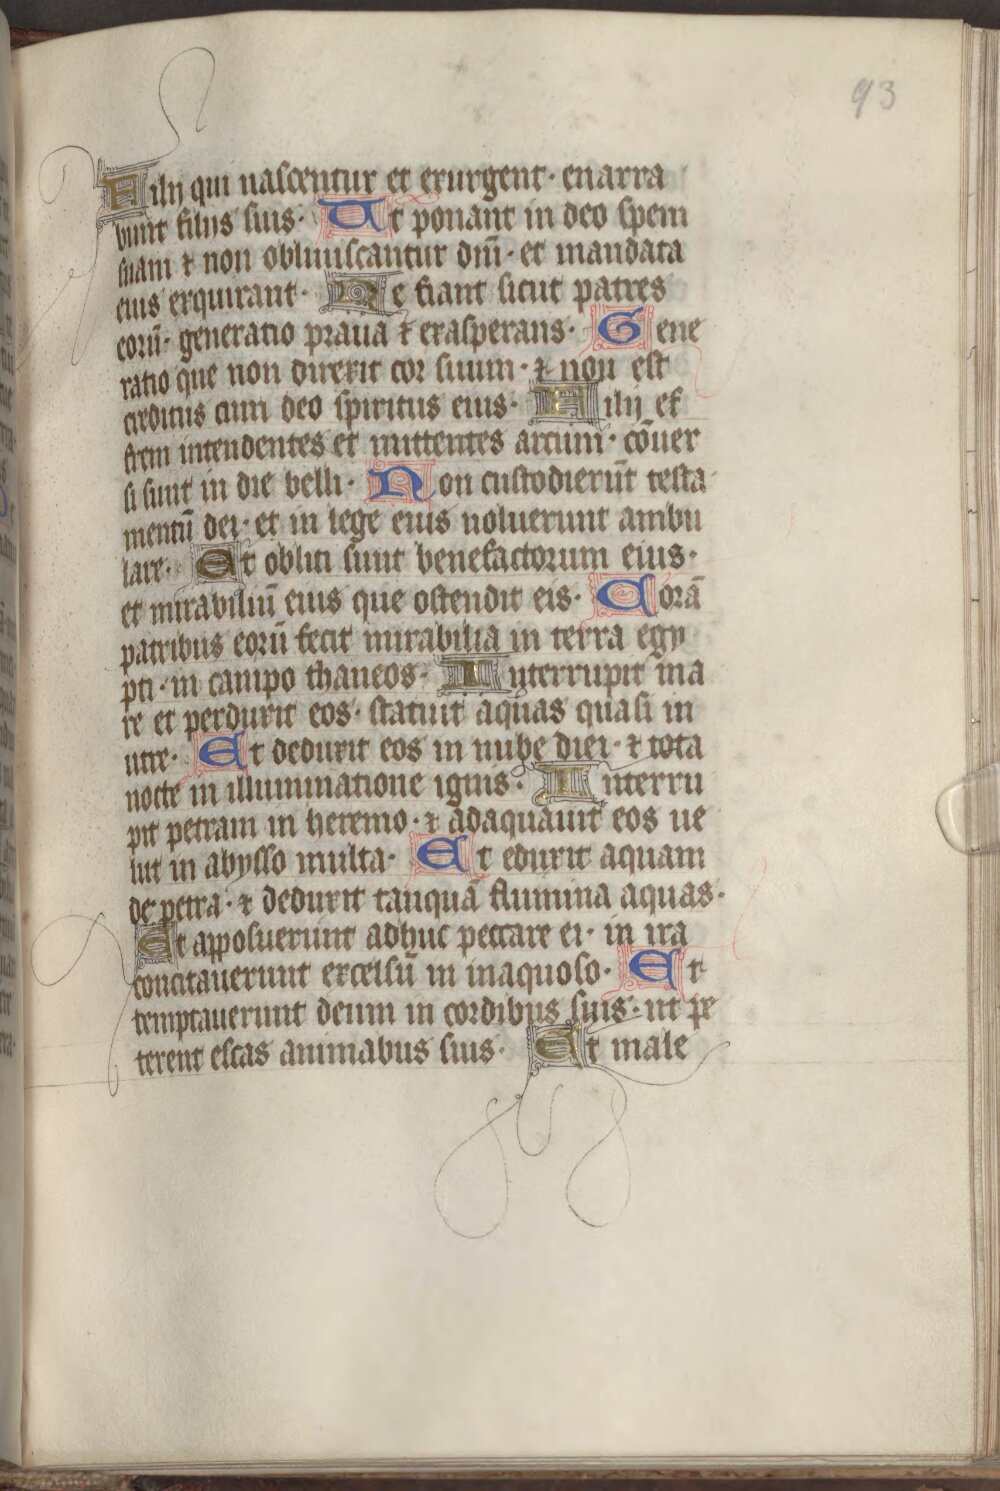 93
Filij qui nascentur et exurgent · enarra
bunt filijs suis · Ut ponant in deo spem
suam ⁊ non obliuiscantur dm̄ · et mandata
eius exquirant · Ne fiant sicut patres
eorū · generatio praua ⁊ exasperans · Gene
ratio que non direxit cor suum · ⁊ non est
creditus cum deo spiritus eius · Filij ef
frem intendentes et mittentes arcum · cōuer
si sunt in die belli · Non custodierūt testa
mentū dei · et in lege eius noluerunt ambu
lare · Et obliti sunt benefactorum eius ·
et mirabiliū eius que ostendit eis · Corā
patribus eorū fecit mirabilia in terra egy
pti · in campo thaneos · Interrupit ma
re et perduxit eos · statuit aquas quasi in
utre · Et deduxit eos in nube diei · ⁊ tota
nocte in illuminatione ignis · Interru
pit petram in heremo · ⁊ adaquauit eos ue
lut in abysso multa · Et eduxit aquam
de petra · ⁊ deduxit tanquā flumina aquas ·
Et apposuerunt adhuc peccare ei · in ira
concitauerunt excelsū in inaquoso · Et
temptauerunt deum in cordibus suis · ut pe
terent escas animabus suis · Et male